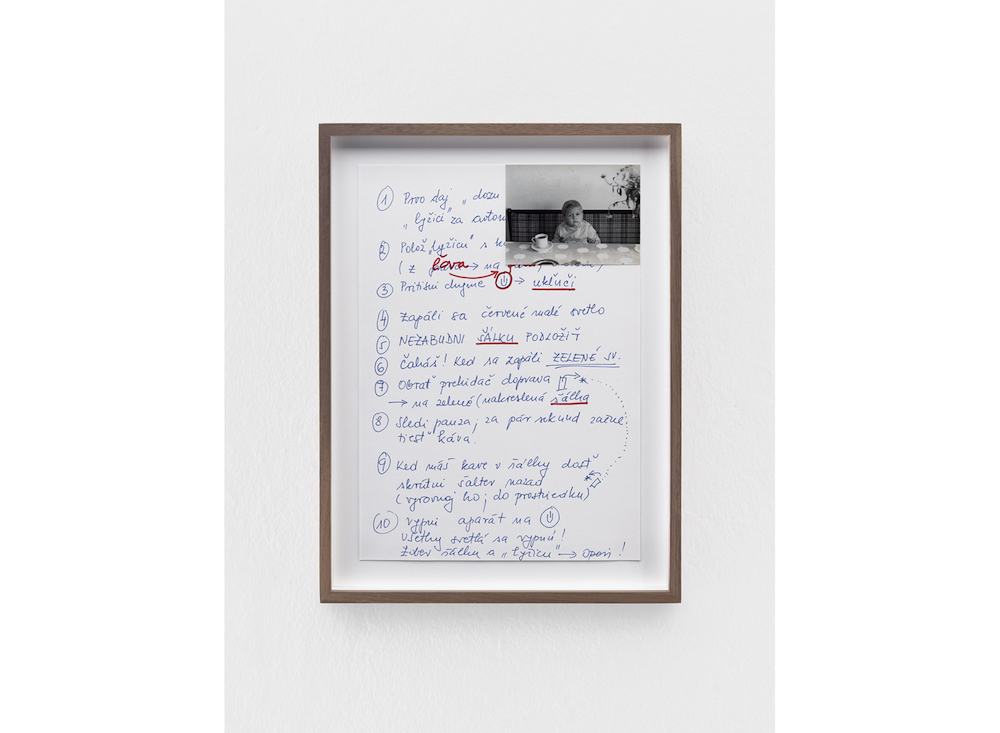 ① Prvo daj „ dozu
„ lyžici" za autom
② Polož „lyžicu" s
(z ľava → na
③ Pritisni dugme → uključi
④ Zapáli sa červené malé svetlo
⑤ NEZABUDNI ŠÁLKU PODLOŽIŤ
⑥ Čakáš! Ked sa zapáli ZELENÉ SV.
⑦ Obrať prekidač doprava
→ na zelené (nakreslená šálka
⑧ Sledi pauza, za pár sekund začne
tiesť káva.
⑨ Ked máš kave v šálky dosť
skrutni šalter nazad
(vyrovnaj ho; do prostriedku)
⑩ vypni aparát na
všetky svetlá sa vypnú!
Zober šálku a „lyžicu" → Operi!